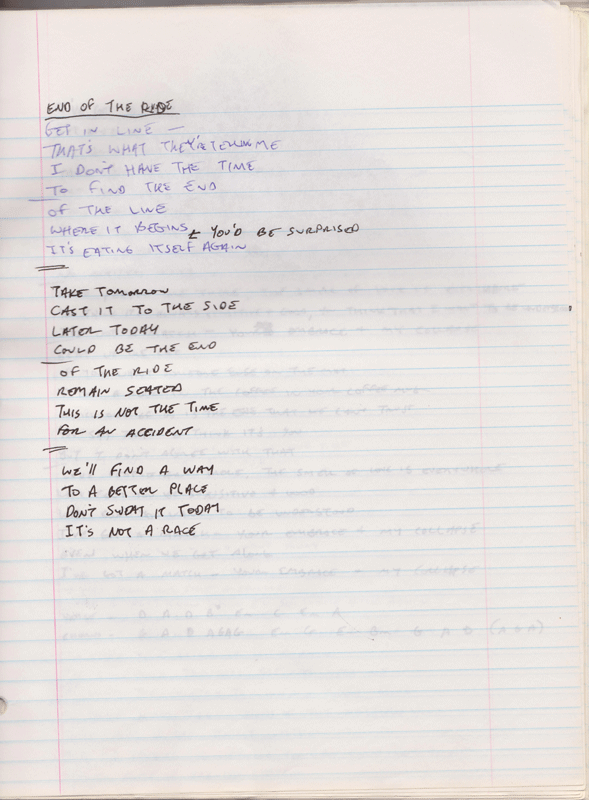 END OF THE RIDE
GET IN LINE —
THAT'S WHAT THEY'RE TELLING ME
I DON'T HAVE THE TIME
TO FIND THE END
OF THE LINE
WHERE IT BEGINS & YOU'D BE SURPRISED
IT'S EATING ITSELF AGAIN
TAKE TOMORROW
CAST IT TO THE SIDE
LATER TODAY
COULD BE THE END
OF THE RIDE
REMAIN SEATED
THIS IS NOT THE TIME
FOR AN ACCIDENT
WE'LL FIND A WAY
TO A BETTER PLACE
DON'T SWEAT IT TODAY
IT'S NOT A RACE